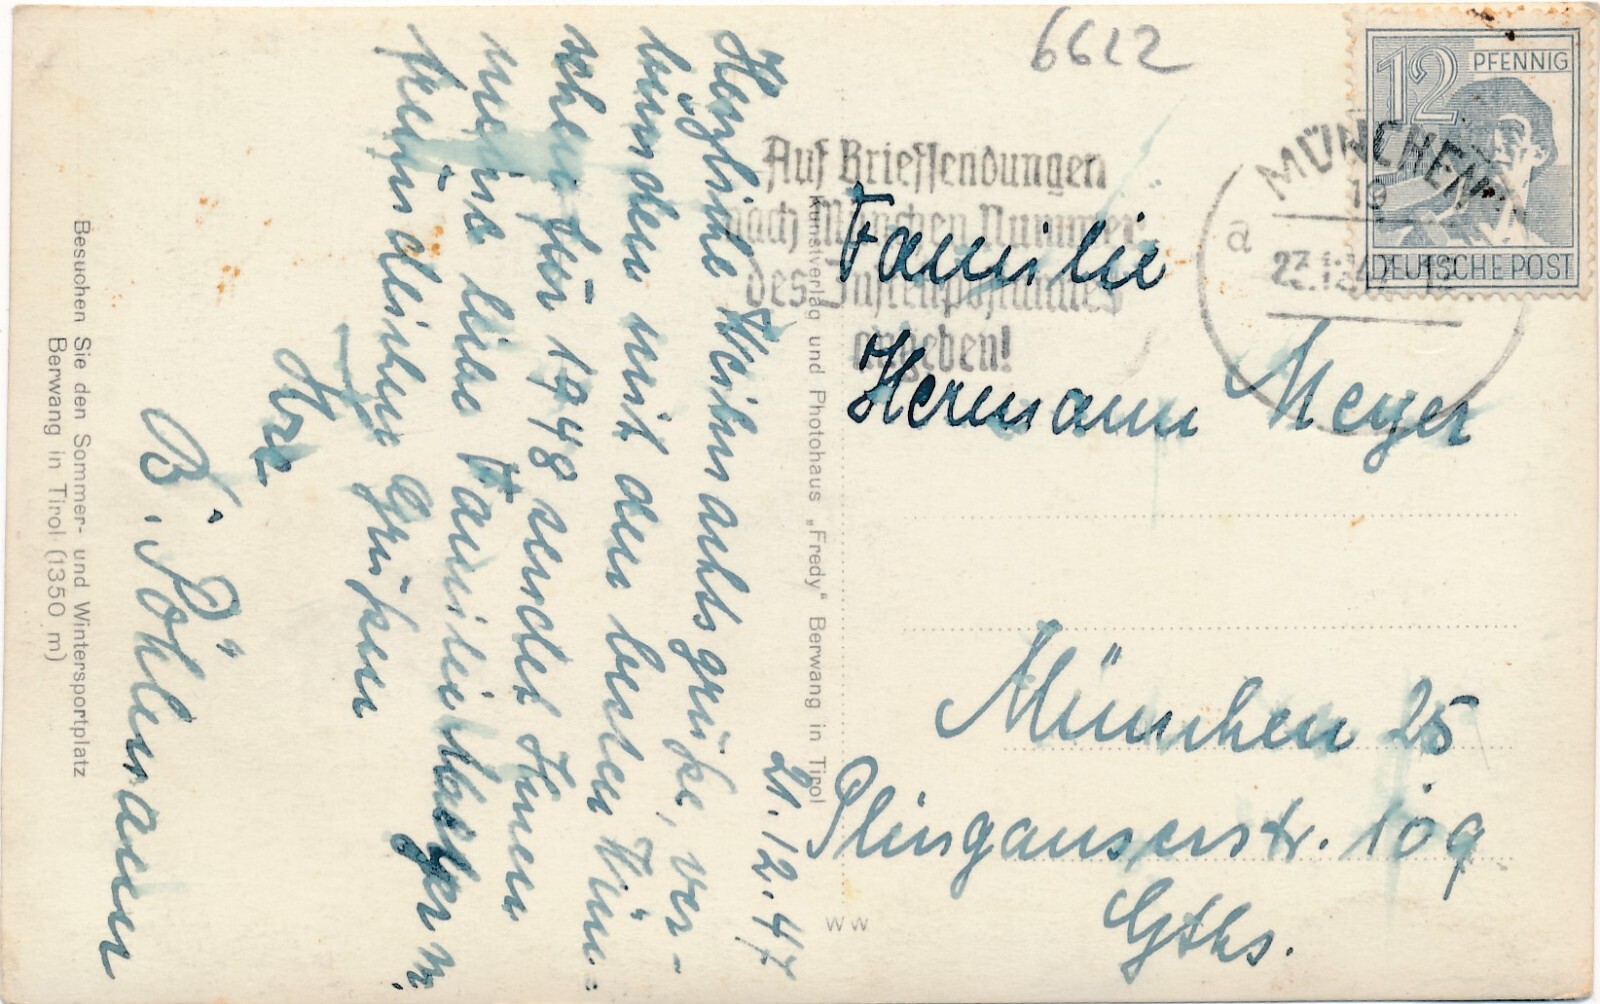 6622
12 PFENNIG
DEUTSCHE POST
MÜNCHEN
19
a
Auf Briefsendungen
nach München Nummer
des Zustellpostamtes
angeben!
Familie
Hermann Meyer
München 25
Plinganserstr. 109
Gths.
21.12.47
Herzliche Weihnachtsgrüße, ver-
bunden mit den besten Wün=
schen für 1948 sendet Ihnen
meine liebe Familie m.
freundlichen Grüßen
Ihre
B. Pöhlmann
Kunstverlag und Photohaus „Fredy" Berwang in Tirol
WW
Besuchen Sie den Sommer- und Wintersportplatz
Berwang in Tirol (1350 m)